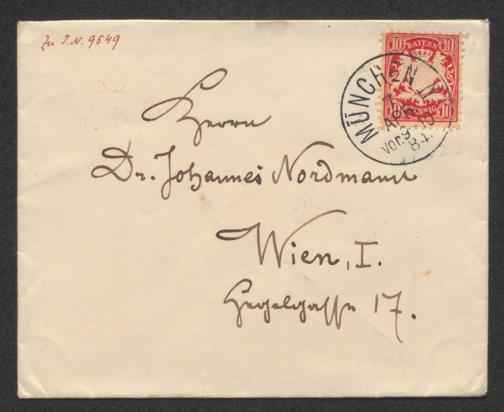 Zu I.N. 9549
10 BAYERN 10
MÜNCHEN
7
APR
Vor. 9-10
84.
Herrn
Dr. Johannes Nordmann
Wien, I.
Hegelgasse 17.